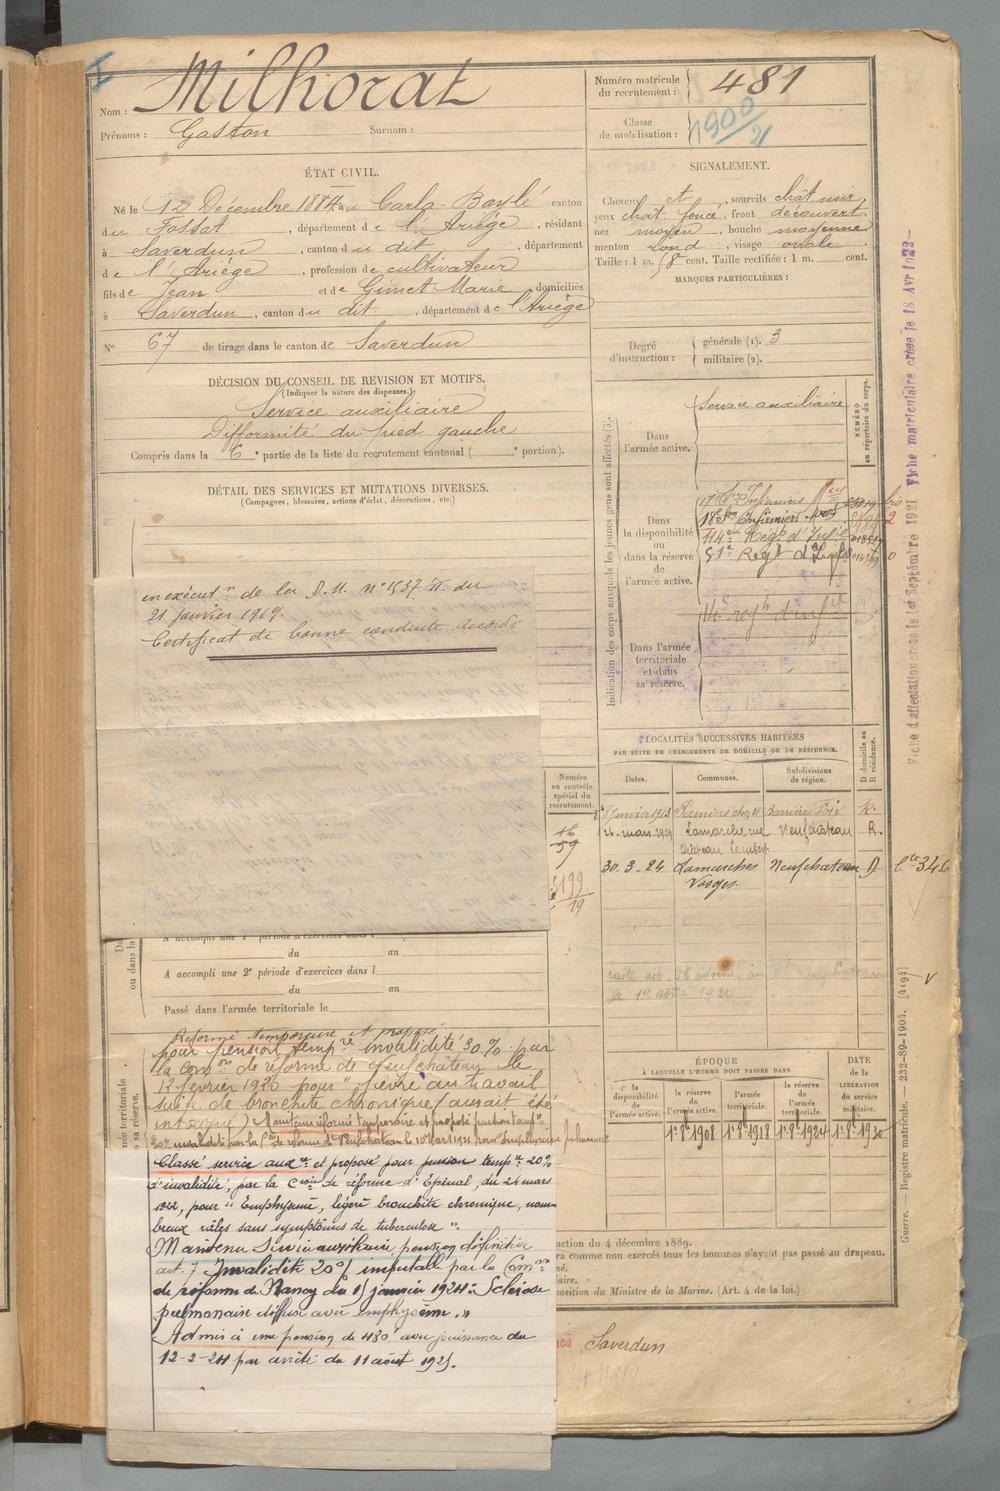 Nom : Milhorat
Prénoms : Gaston Surnom :
Numéro matricule du recrutement : 481
Classe de mobilisation : 1900/21
ÉTAT CIVIL.
Né le 12 Décembre 1884 à Carla-Bayle canton
du Fossat, département de l'Ariège, résidant
à Saverdun, canton du dit, département
de l'Ariège, profession de cultivateur
fils de Jean et de Gimet Marie domiciliés
à Saverdun, canton du dit, département de l'Ariège
N° 67 de tirage dans le canton de Saverdun
SIGNALEMENT.
Cheveux et, sourcils chât noir
yeux chât. foncé, front découvert
nez moyen, bouche moyenne
menton rond, visage ovale
Taille : 1 m. 58 cent. Taille rectifiée : 1 m. cent.
MARQUES PARTICULIÈRES :
Degré d'instruction : générale (1). 3
militaire (2).
DÉCISION DU CONSEIL DE REVISION ET MOTIFS.
(Indiquer la nature des dispenses.)
Service auxiliaire
Difformité du pied gauche
Compris dans la 6e partie de la liste du recrutement cantonal ( e portion).
DÉTAIL DES SERVICES ET MUTATIONS DIVERSES.
(Campagnes, blessures, actions d'éclat, décorations, etc.)
en exécutn de la D.M. n° 1537 du
21 janvier 1919.
Certificat de bonne conduite accordé
Indication des corps auxquels les jeunes gens sont affectés (3).
NUMÉRO au répertoire du corps.
Dans l'armée active.
Service auxiliaire
Dans la disponibilité ou dans la réserve de l'armée active.
17e Son Infirmiers
18e Son Infirmiers
51e Regt d'Inf
14e regt d'inf
Dans l'armée territoriale et dans sa réserve.
Fiche d'affectation créée le 1er Septembre 1921 Fiche matriculaire créée le 18 Avr 1922
LOCALITÉS SUCCESSIVES HABITÉES
PAR SUITE DE CHANGEMENTS DE DOMICILE OU DE RÉSIDENCE.
Dates. Communes. Subdivisions de région. D domicile ou R résidence.
8 janvier 1913 Pamiers chez M. Barrière Foix R.
26 mars 1919 Lamarche rue Neufchateau R.
30-3-24 Lamarche Neufchateau D
Vosges
Numéro au contrôle spécial du recrutement.
46
59
5199
19
A accompli une 1e période d'exercices dans l
du au
A accompli une 2e période d'exercices dans l
du au
Passé dans l'armée territoriale le
Réformé temporaire et proposé
pour pension tempre invalidité 30% par
la Comon de réforme de Neufchâteau le
13 février 1920 pour "fièvre au travail
suite de bronchite chronique (aurait été
intoxiqué) Maintenu réformé temporaire et proposé pension tempre
Classé service auxre et proposé pour pension tempre 20%
d'invalidité, par la Cion de réforme d'Epinal, du 24 mars
1922, pour "Emphysème, légère bronchite chronique, nom-
breux râles sans symptômes de tuberculose".
Maintenu Service auxiliaire pension définitive
art. 7 Invalidité 20% imputable par la Comon
de réforme de Nancy du 15 janvier 1924 : "Sclérose
pulmonaire diffuse avec emphysème."
Admis à une pension de 480f avec jouissance du
12-2-24 par arrêté du 11 août 1925.
ÉPOQUE
À LAQUELLE L'HOMME DOIT PASSER DANS
la disponibilité de l'armée active. la réserve de l'armée active. l'armée territoriale. la réserve de l'armée territoriale.
DATE de la LIBÉRATION du service militaire.
1er 8bre 1908 1er 8bre 1918 1er 8bre 1924 1er 8bre 1930
Guerre. — Registre matricule. — 232-89-1904. [4194]
uction du 4 décembre 1889.
ra comme non exercés tous les hommes n'ayant pas passé au drapeau.
né.
iaire.
position du Ministre de la Marine. (Art. 4 de la loi.)
Saverdun